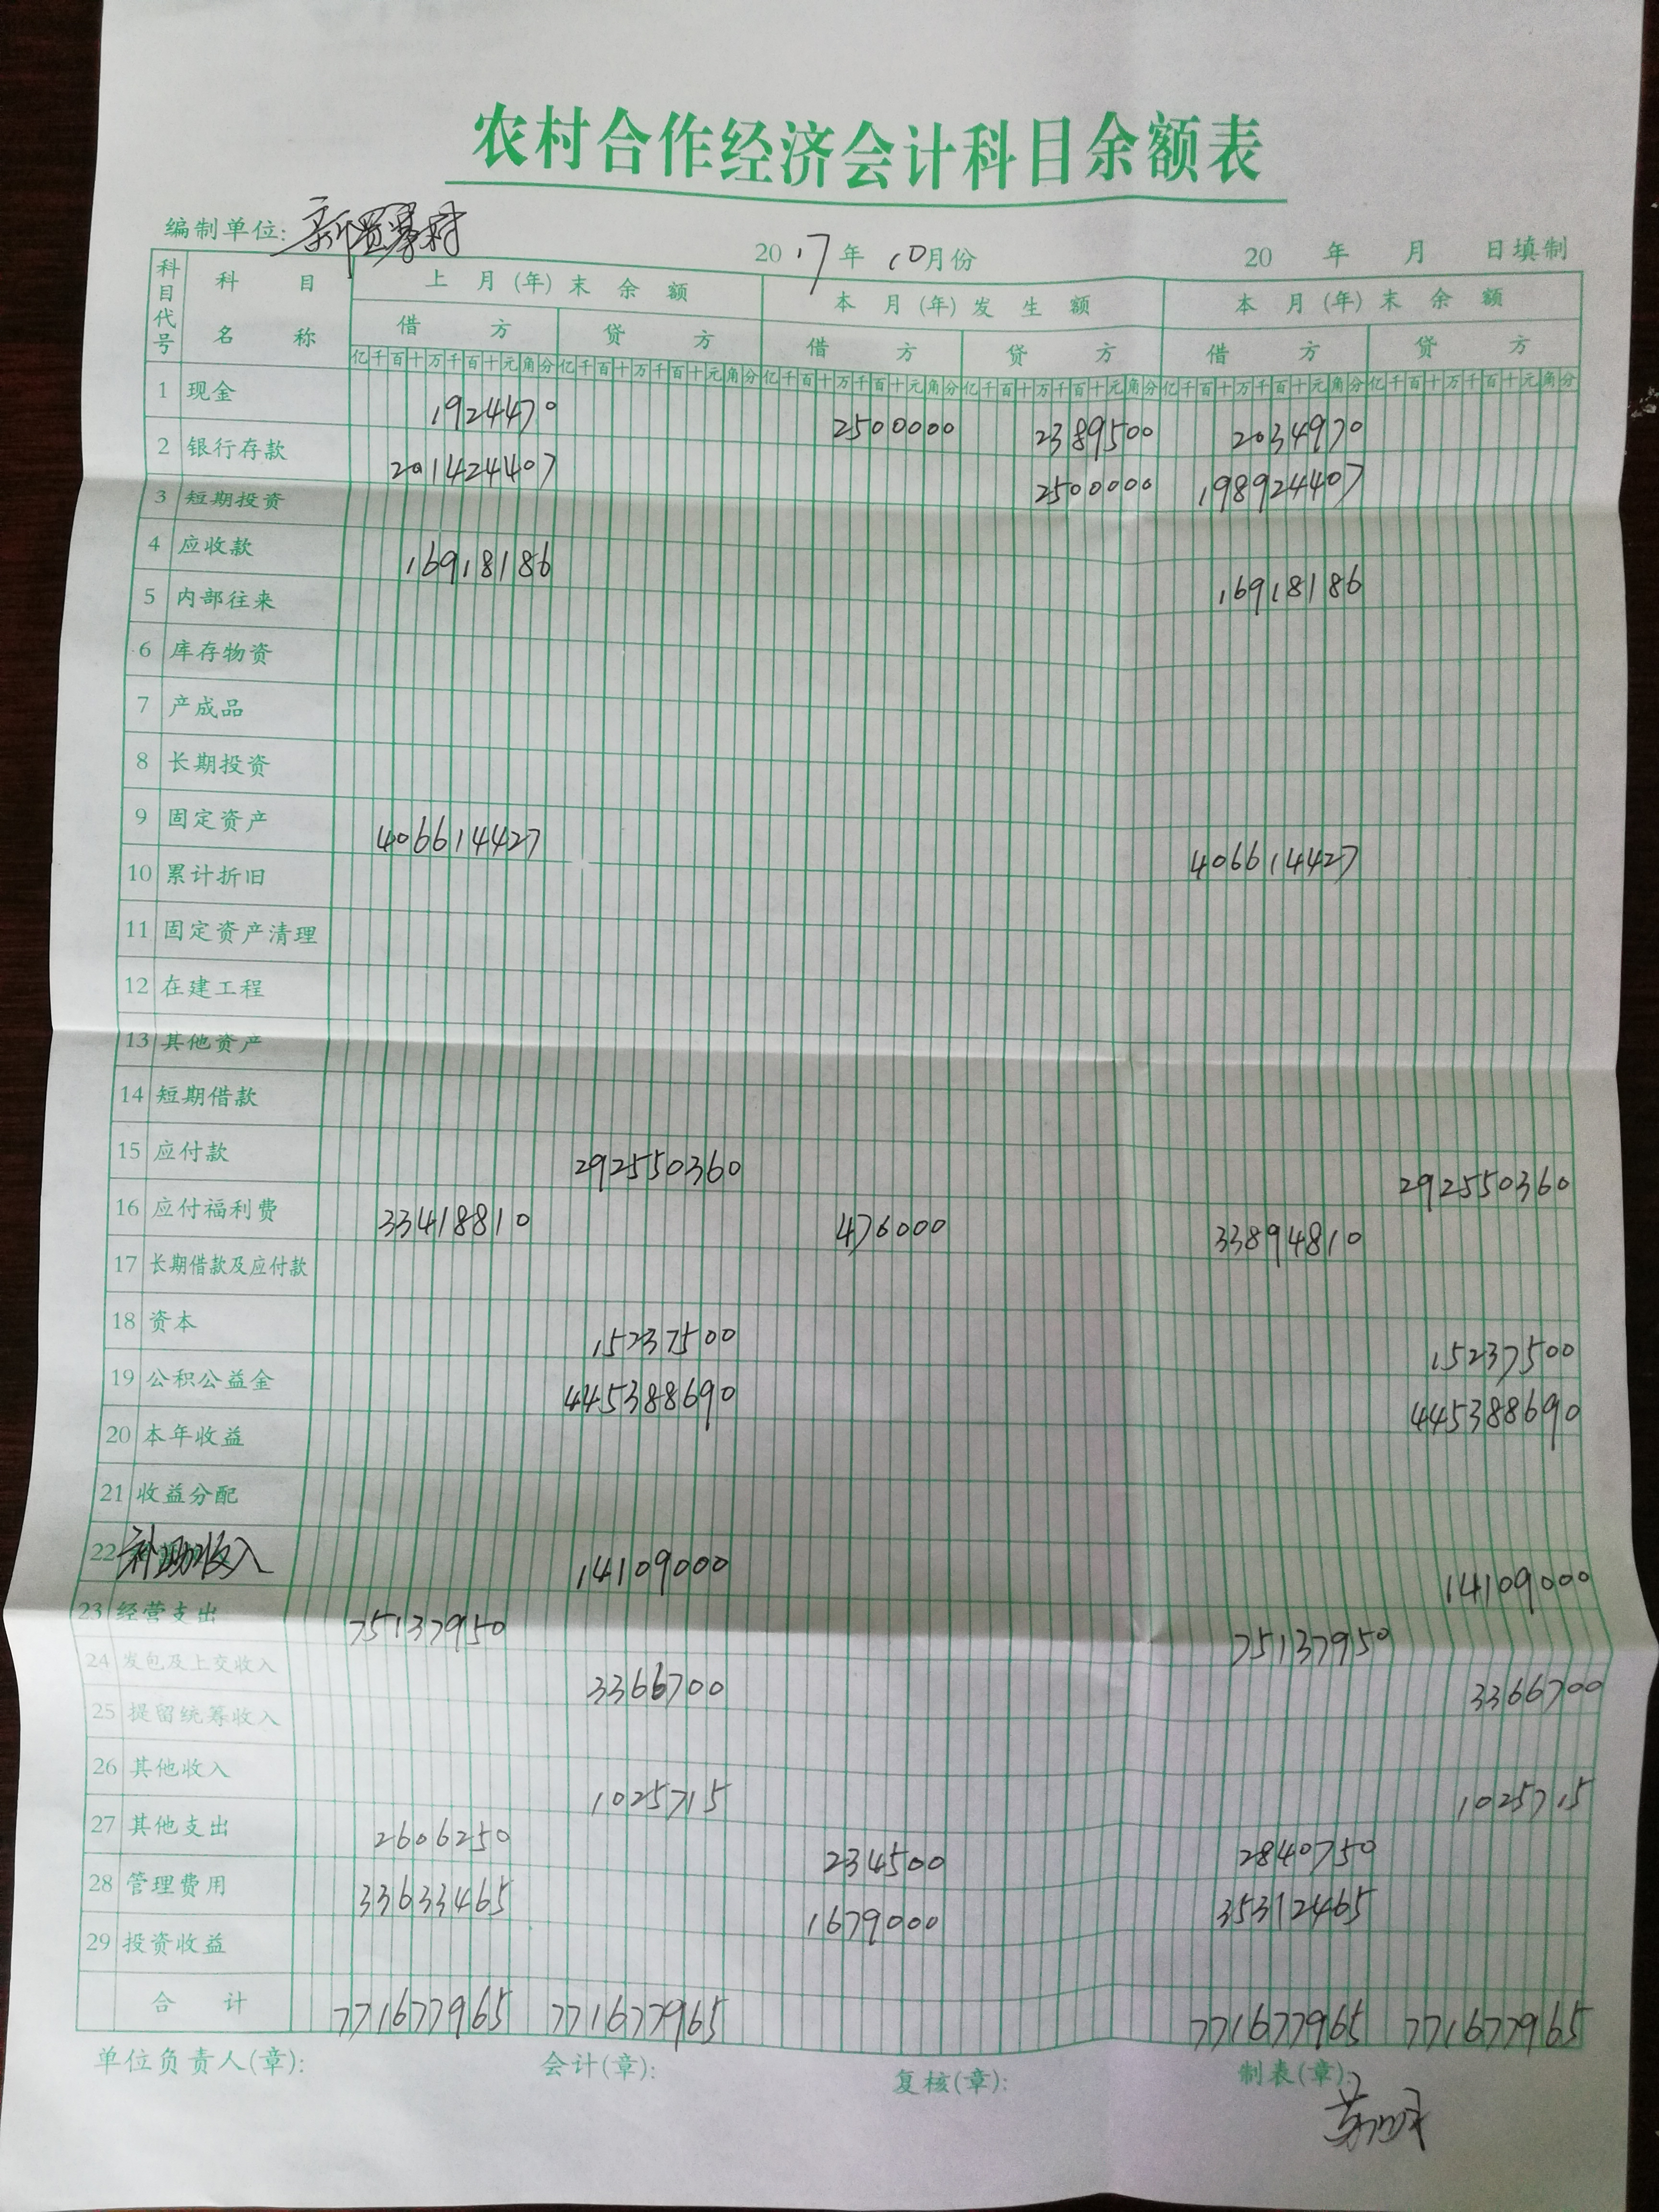 农村合作经济会计科目余额表
编制单位: 新 村 2017年 10月份 20 年 月 日填制
科目代号 科目名称 上月(年)末余额 本月(年)发生额 本月(年)末余额
借方 贷方 借方 贷方 借方 贷方
亿千百十万千百十元角分 亿千百十万千百十元角分 亿千百十万千百十元角分 亿千百十万千百十元角分 亿千百十万千百十元角分 亿千百十万千百十元角分
1 现金 1924470 2500000 2389500 2034970
2 银行存款 201424407 2500000 198924407
3 短期投资
4 应收款 16918186 16918186
5 内部往来
6 库存物资
7 产成品
8 长期投资
9 固定资产 406614427 406614427
10 累计折旧
11 固定资产清理
12 在建工程
13 其他资产
14 短期借款
15 应付款 292550360 292550360
16 应付福利费 33418810 476000 33894810
17 长期借款及应付款
18 资本 15237500 15237500
19 公积公益金 445388690 445388690
20 本年收益
21 收益分配
22 补助收入 14109000 14109000
23 经营支出 75137950 75137950
24 发包及上交收入 3366700 3366700
25 提留统筹收入
26 其他收入 1025715 1025715
27 其他支出 2606250 234500 2840750
28 管理费用 33633465 1679000 35312465
29 投资收益
合计 771677965 771677965 771677965 771677965
单位负责人(章): 会计(章): 复核(章): 制表(章):